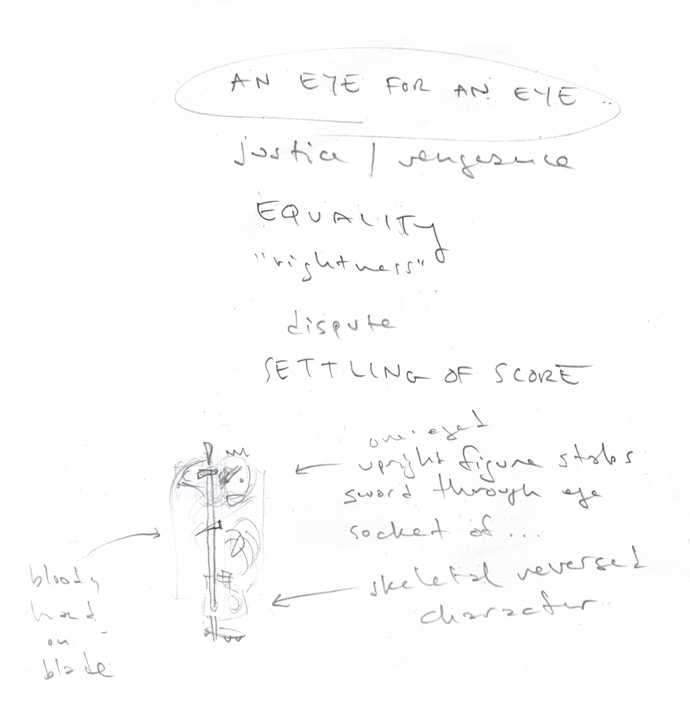 AN EYE FOR AN EYE..
justice / vengeance
EQUALITY
"rightness"
dispute
SETTLING OF SCORE
one-eyed
upright figure stabs
sword through eye
socket of...
skeletal reversed
character
bloody
hand
on
blade